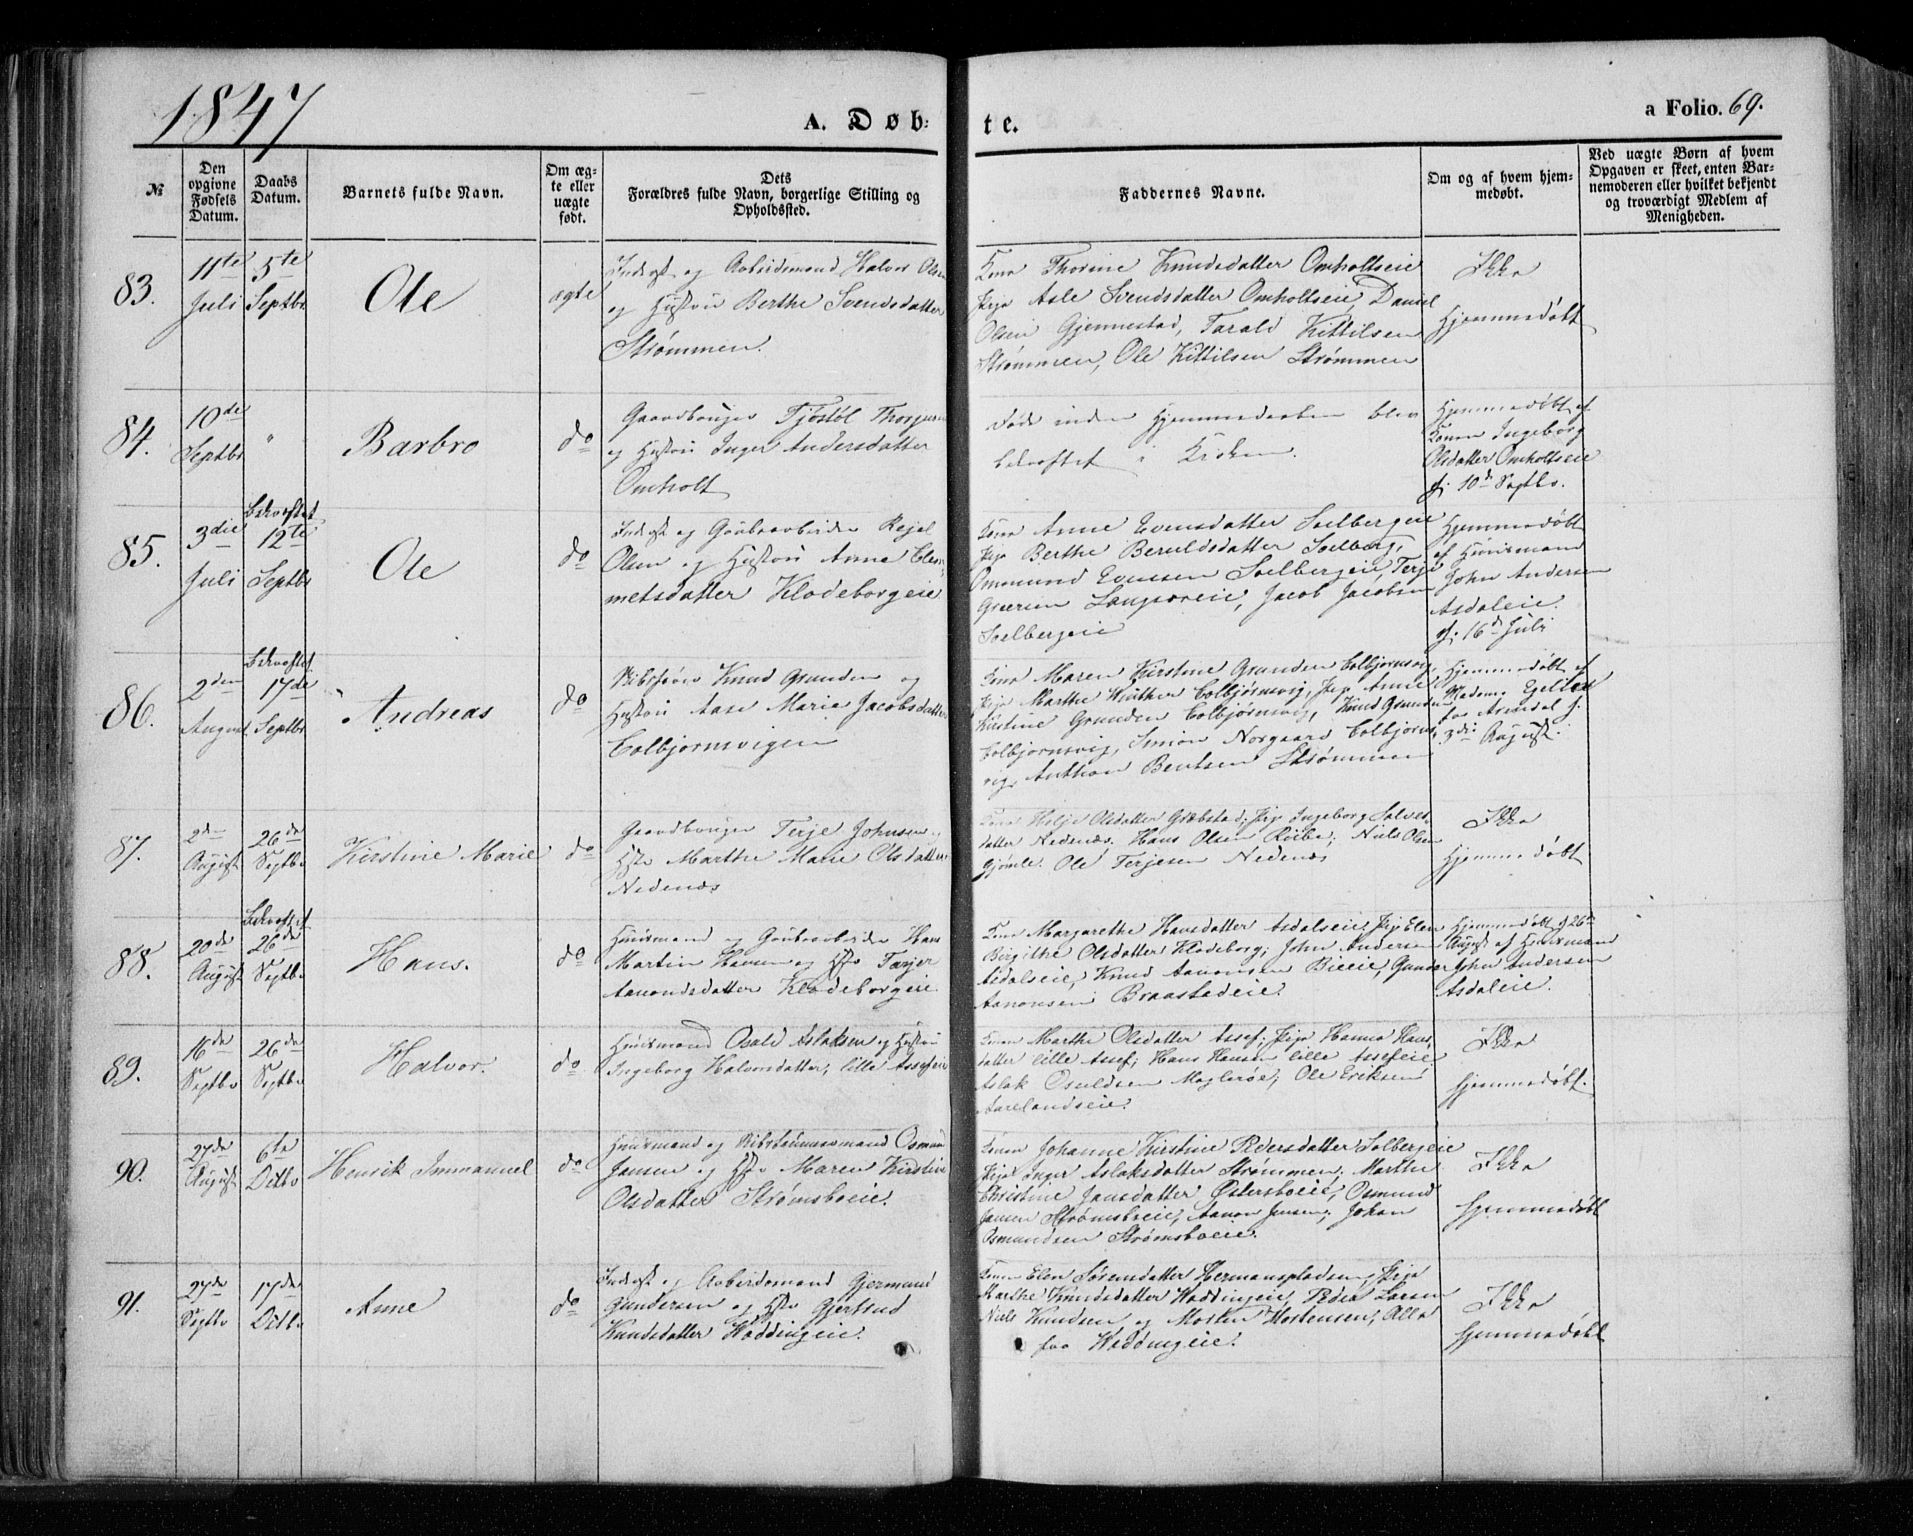 1847
A. Døb:
te.
a Folio. 69.
№
Den opgivne Fødsels Datum.
Daabs Datum.
Barnets fulde Navn.
Om ægte eller uægte født.
Dets Forældres fulde Navn, borgerlige Stilling og Opholdssted.
Faddernes Navne.
Om og af hvem hjemmedøbt.
Ved uægte Børn af hvem Opgaven er skeet, enten Barnemoderen eller hvilket bekjendt og troværdigt Medlem af Menigheden.
83.
11te Juli
5te Septbr
Ole
ægte
Inderst og Arbeidsmand Halvor Olsen
og Hustru Berthe Svendsdatter
Strømmen.
Kone Thorine Knudsdatter Omholtseie
Pige Asle Svendsdatter Omholtseie, Daniel
Olsen Gjennestad, Tarald Kittilsen
Strømmen, Ole Kittilsen Strømmen
Ikke
Hjemmedøbt
84.
10de Septbr
"
Barbro
do
Gaardbruger Tjøstøl
og Hustru Inger Andersdatter
Omholt
Døde inden Hjemmedaaben blev
bekræftet i Kirken.
Hjemmedøbt af
Konen Ingeborg
Olsdatter Omholtseie
10d Septbr.
85.
3die Juli
Bekræftet
12te Septbr
Ole
do
Inderst og Grubearbeider
Olsen og Hustru Anne Clem-
metsdatter Klodeborgeie
Kone Anne Evensdatter Solbergeie
Pige Berthe Beruldsdatter Solberg,
Ommund Evensen Solbergeie, Terje
Langsæeie, Jacob Jacobsen
Solbergeie
Hjemmedøbt
af Huusmand
John Andersen
Asdaleie.
16d Juli
86.
2den August
Bekræftet
17de Septbr
Andreas
do
Skibsfører Knud Grunden og
Hustru Aase Maria Jacobsdatter
Colbjornsvigen
Kone Maren Kirstine Grunden Colbjornsvig,
Pige Marthe Winther Colbjørnsvig, Pige Anne
Kirstine Grunden Colbjørnsvig, Knud Grunden
Colbjornsvig, Simon Norgaard Colbjorns-
vig, Anthon Bentsen Strømmen
Hjemmedøbt af
Madame
fra Arendal
3die August.
87.
2den August
26de Septbr
Kirstine Marie
do
Gaardbruger Terje Johnsen
Hstr Marthe Marie Olsdatter
Nedenæs
Kone Helje Olsdatter Græbstad, Pige Ingeborg Salves-
datter Nedenæs, Hans Olsen, Niels Olsen
Gjømle. Ole Terjesen Nedenæs
Ikke
Hjemmedøbt
88.
20de August
Bekræftet
26de Septbr
Hans.
do
Huusmand og Grubearbeider Hans
Martin Hansen og Hstr Torjer
Aanondsdatter Klodeborgeie
Kone Margarethe Hansdatter Asdaleie, Pige Elen
Birgithe Olsdatter Klodeborg, John Andersen
Asdaleie, Knud Aanonsen Bieeie, Gunder
Aanonsen Braastadeie.
Hjemmedøbt 26de
August af Huusmand
John Andersen
Asdaleie.
89.
16de Septbr
26de Septbr
Halvor.
do
Huusmand Osuld Aslaksen og Hustru
Ingeborg Halvorsdatter, lille Assefeie
Konen Marthe Olsdatter Assef, Pige Hanna Hans-
datter lille Assef, Hans Hansen lille Assefeie
Aslak Osuldsen Maglerøe, Ole Eriksen
Aarelandseie.
Ikke
hjemmedøbt.
90.
27de August
6te Ditto
Henrik Immanuel
do
Huusmand og Skibstømmermand Osmund
Jansen og Hstr Maren Kirstine
Olsdatter Strømsboeie.
Konen Johanne Kirstine Pedersdatter Solbergeie
Pige Inger Aslaksdatter Strømmen, Marthe
Christine Jansdatter Østersboeie, Osmund
Jansen Strømsboeie, Aanon Jensen, Johan
Osmundsen Strømsboeie.
Ikke
hjemmedøbt
91.
27de Septbr
17de Ditto
Anne
do
Inderst og Arbeidsmand Gjermund
Gundersen og Hstr Gjertrud
Knudsdatter Håddingeie.
Konen Elen Sørensdatter Hermanspladsen, Pige
Marthe Knudsdatter Håddingeie, Peder Larsen
Niels Knudsen og Morten Mortensen, Alle
fra Håddingeie.
Ikke
hjemmedøbt